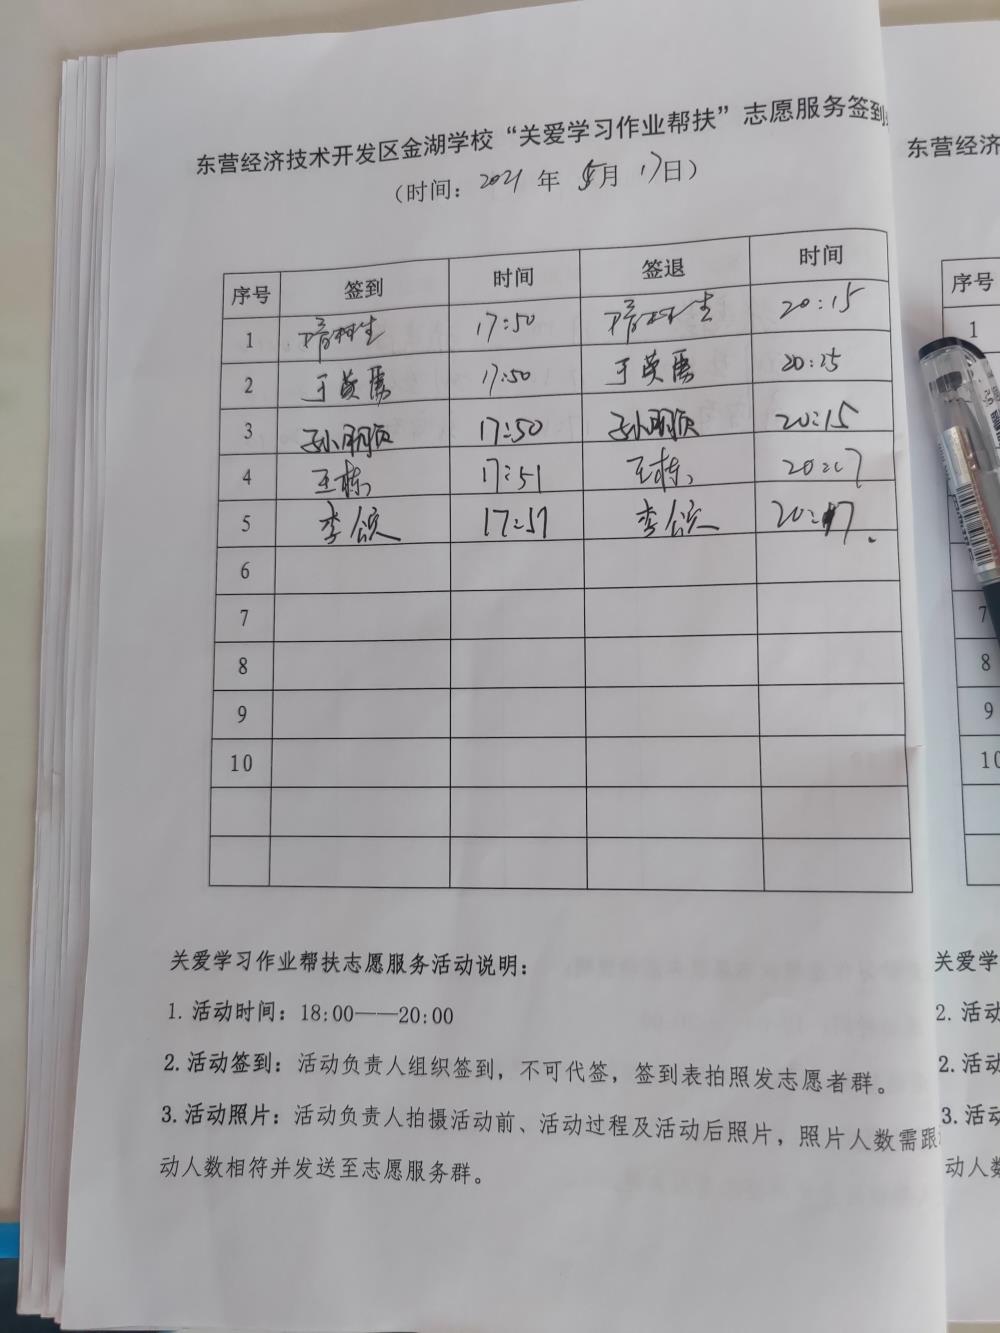 东营经济技术开发区金湖学校“关爱学习作业帮扶”志愿服务签到
（时间：2021 年 5月 17日）
序号 签到 时间 签退 时间
1 17:50 20:15
2 于英勇 17:50 于英勇 20:15
3 孙朋顺 17:50 孙朋顺 20:15
4 王栋 17:51 王栋 20:17
5 李 17:51 李 20:17.
6
7
8
9
10
关爱学习作业帮扶志愿服务活动说明：
1. 活动时间：18:00——20:00
2. 活动签到：活动负责人组织签到，不可代签，签到表拍照发志愿者群。
3. 活动照片：活动负责人拍摄活动前、活动过程及活动后照片，照片人数需跟
动人数相符并发送至志愿服务群。
东营经济
序号
1
7
8
9
10
关爱学
2. 活动
2. 活动
3. 活动
动人数